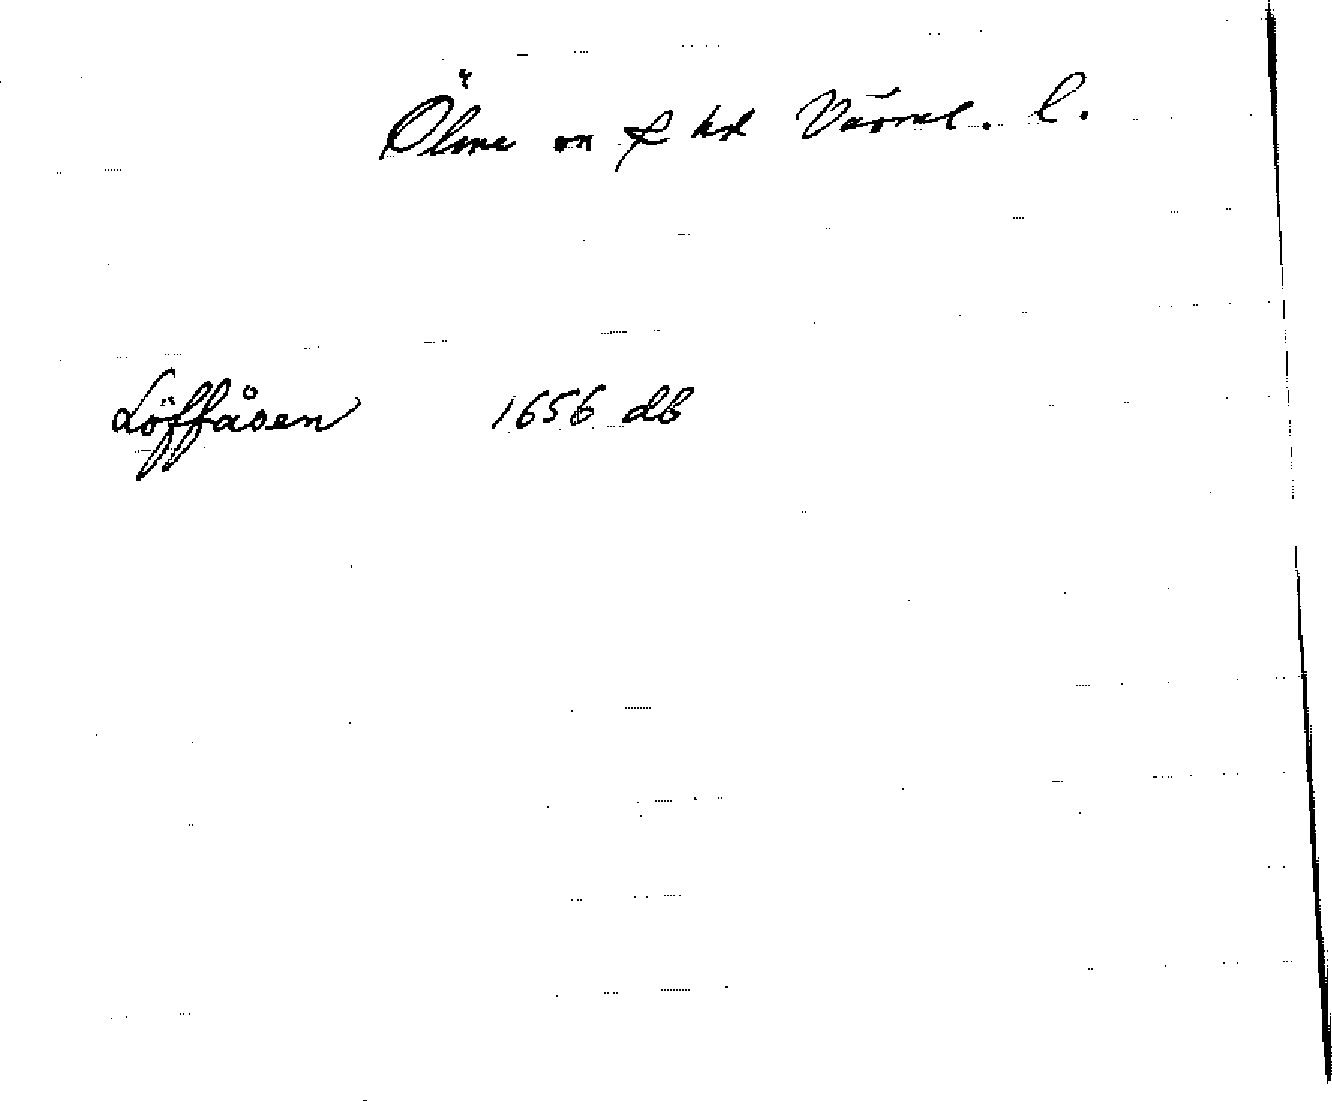 Ölme sn & hd Värml. l.
Löffåsen 1656 db